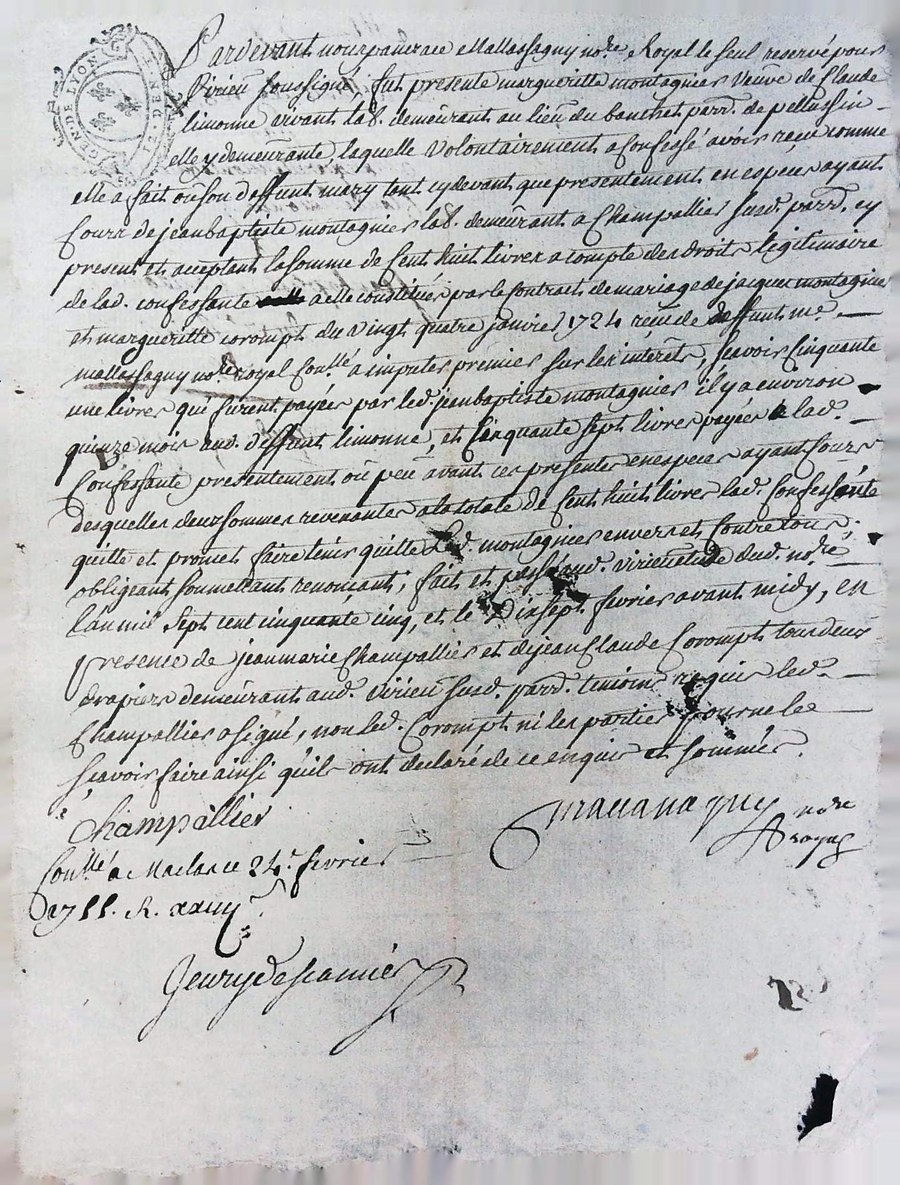 GEND DE LION
2 DEN
Pardevant nous pancrace Mallassagny nore. Royal le seul reservé pour
Virieu soussigné, fut presente margueritte montagnier veuve de Claude
limonne vivant lab. demeurant au lieu du banchet parr. de pellussin
elle y demeurante, laquelle volontairement a confessé avoir reçu comme
elle a fait ou son deffunt mary tant cydevant que presentement en espece ayant
Cours de jean baptiste montagnier lab. demeurant a Champallier susd. parr. cy
present et acceptant la somme de Cent huit livres a compte des droits légitimaire
de lad. confessante a elle constitués par le contract de mariage de jacque montagnier
et margueritte corompt du vingt quatre janvier 1724 reçu de deffunt me.
mallassagny nore. royal Conllé a imputer premier sur les intérets, scavoir Cinquante
une livres qui furent payées par led. jean baptiste montagnier il y a environ
quinze mois aud. deffunt limonne, et Cinquante sept livres payées a lad.
Confessante presentement ou peu avant ces presentes en espece ayant Cours
desquelles deux sommes revenantes a la totale de Cent huit livres lad. Confessante
quitte et promet faire tenir quitte led. montagnier envers et contre tous.
obligeant soumettant renonçant, fait et passé aud. virieu etude dud. nore.
l'an mil sept cent cinquante cinq, et le dixsept fevrier avant midy, en
presence de jean marie Champallier et de jean Claude Corompt tous deux
drapiers demeurant aud. virieu susd. parr. temoins requis led.
Champallier a signé, non led. Corompt ni les parties pour ne le
scavoir faire ainsi qu'ils ont declaré de ce enquis et sommés.
Champallier
nore
royal
Conllé a Maclas ce 24e. fevrier
1755. R.